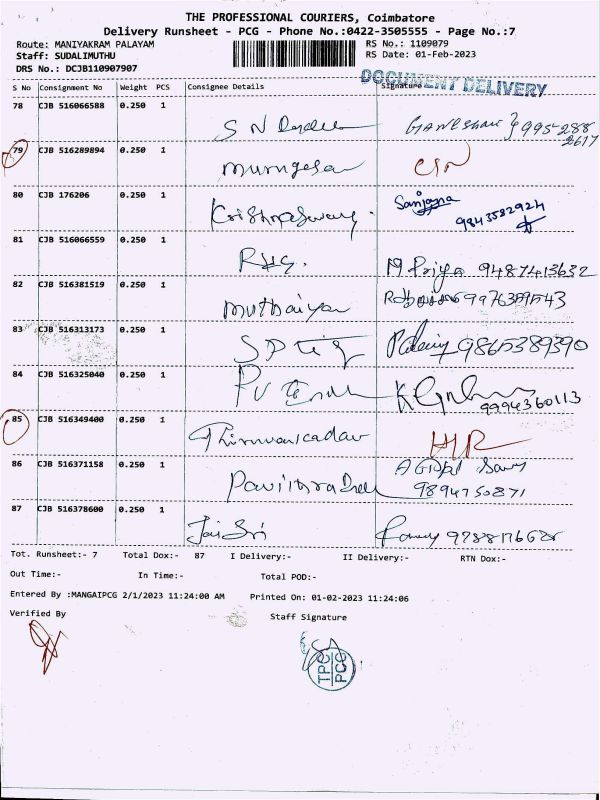 THE PROFESSIONAL COURIERS, Coimbatore
Delivery Runsheet - PCG - Phone No.:0422-3505555 - Page No.:7
Route: MANIYAKRAM PALAYAM RS No.: 1109079
Staff: SUDALIMUTHU RS Date: 01-Feb-2023
DRS No.: DCJB110907907
DOCUMENT DELIVERY
S No Consignment No Weight PCS Consignee Details Signature
78 CJB 516066588 0.250 1 S N
995288
2617
79 CJB 516289894 0.250 1 murugesan
80 CJB 176206 0.250 1 Krishnaswamy. Sanjana
9843582924
81 CJB 516066559 0.250 1 M Priya 9487413632
82 CJB 516381519 0.250 1 muthaiya
83 CJB 516313173 0.250 1 9865389390
84 CJB 516325040 0.250 1
9994360113
85 CJB 516349400 0.250 1 H/R
86 CJB 516371158 0.250 1 A Gopal Samy
9894750871
87 CJB 516378600 0.250 1 Jai Sri
Tot. Runsheet:- 7 Total Dox:- 87 I Delivery:- II Delivery:- RTN Dox:-
Out Time:- In Time:- Total POD:-
Entered By :MANGAIPCG 2/1/2023 11:24:00 AM Printed On: 01-02-2023 11:24:06
Verified By Staff Signature
TPC
PCG